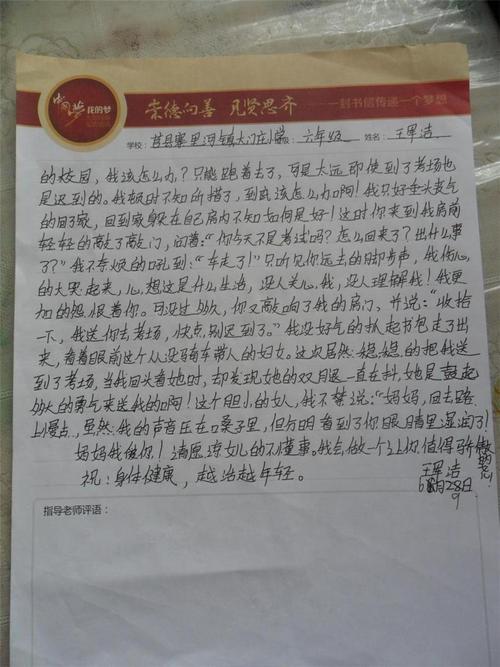 中国梦 我的梦
崇德向善 见贤思齐 一封书信传递一个梦想
学校：莒县寨里河镇大门庄小学 班级：六年级 姓名：王军洁
的校园，我该怎么办？只能跑着去了，可是太远即使到了考场也
是迟到的。我顿时不知所措了，到底该怎么办啊！我只好垂头丧气
的回了家，回到家躲在自己房内不知如何是好！这时你来到我房前
轻轻的敲了敲门，问着：“你今天不是考试吗？怎么回来了？出什么事
了？”我不奈烦的吼到：“车走了！”只听见你远去的脚步声，我伤心
的大哭起来，心想这是什么生活，没人关心我，没人理解我！我更
加的怨恨着你。可没过多久，你又敲响了我的房门，并说：“收拾
一下，我送你去考场，快点，别迟到了。”我没好气的扒起书包走了出
来，看着眼前这个人没骑车带人的妇女。这次居然稳稳的把我送
到了考场，当我回头看她时，却发现她的双腿一直在抖，她是鼓起
多大的勇气来送我的啊！这个胆小的女人，我不禁说：“妈妈，回去路
上慢点，虽然我的声音压在口嗓子里，但分明看到了你眼睛里湿润了！
妈妈我爱你！请原谅女儿的不懂事。我会做一个让你值得骄傲的女儿！
祝：身体健康，越活越年轻。
王军洁
9月28日
指导老师评语：